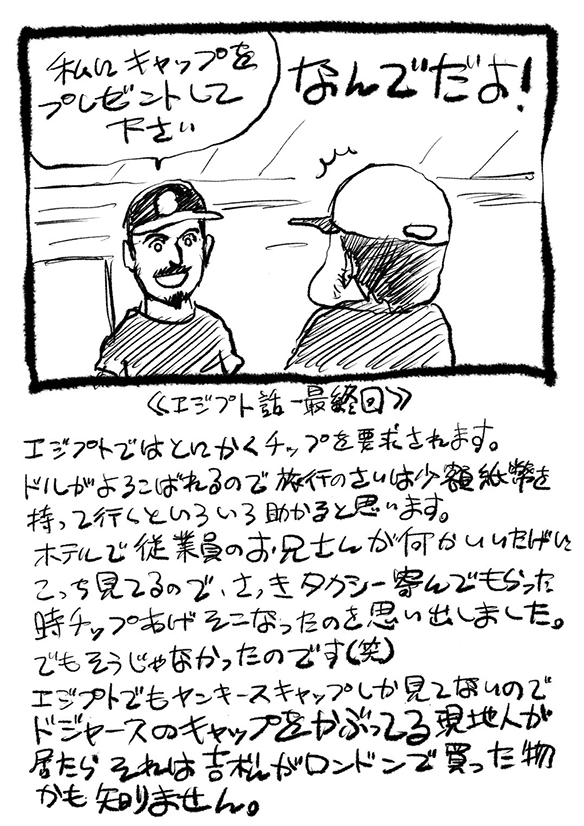 私に キャップを
プレゼントして
下さい
なんでだよ!
《エジプト話ー最終回》
エジプトではとにかくチップを要求されます。
ドルがよろこばれるので 旅行のさいは少額紙幣を
持って行くといろいろ助かると思います。
ホテルで従業員のお兄さんが何かいいたげに
こっち見てるので、さっきタクシー呼んでもらった
時チップあげそこなったのを思い出しました。
でもそうじゃなかったのです(笑)
エジプトでもヤンキースキャップしか見てないので
ドジャースのキャップをかぶってる現地人が
居たら それは吉松がロンドンで買った物
かも知りません。